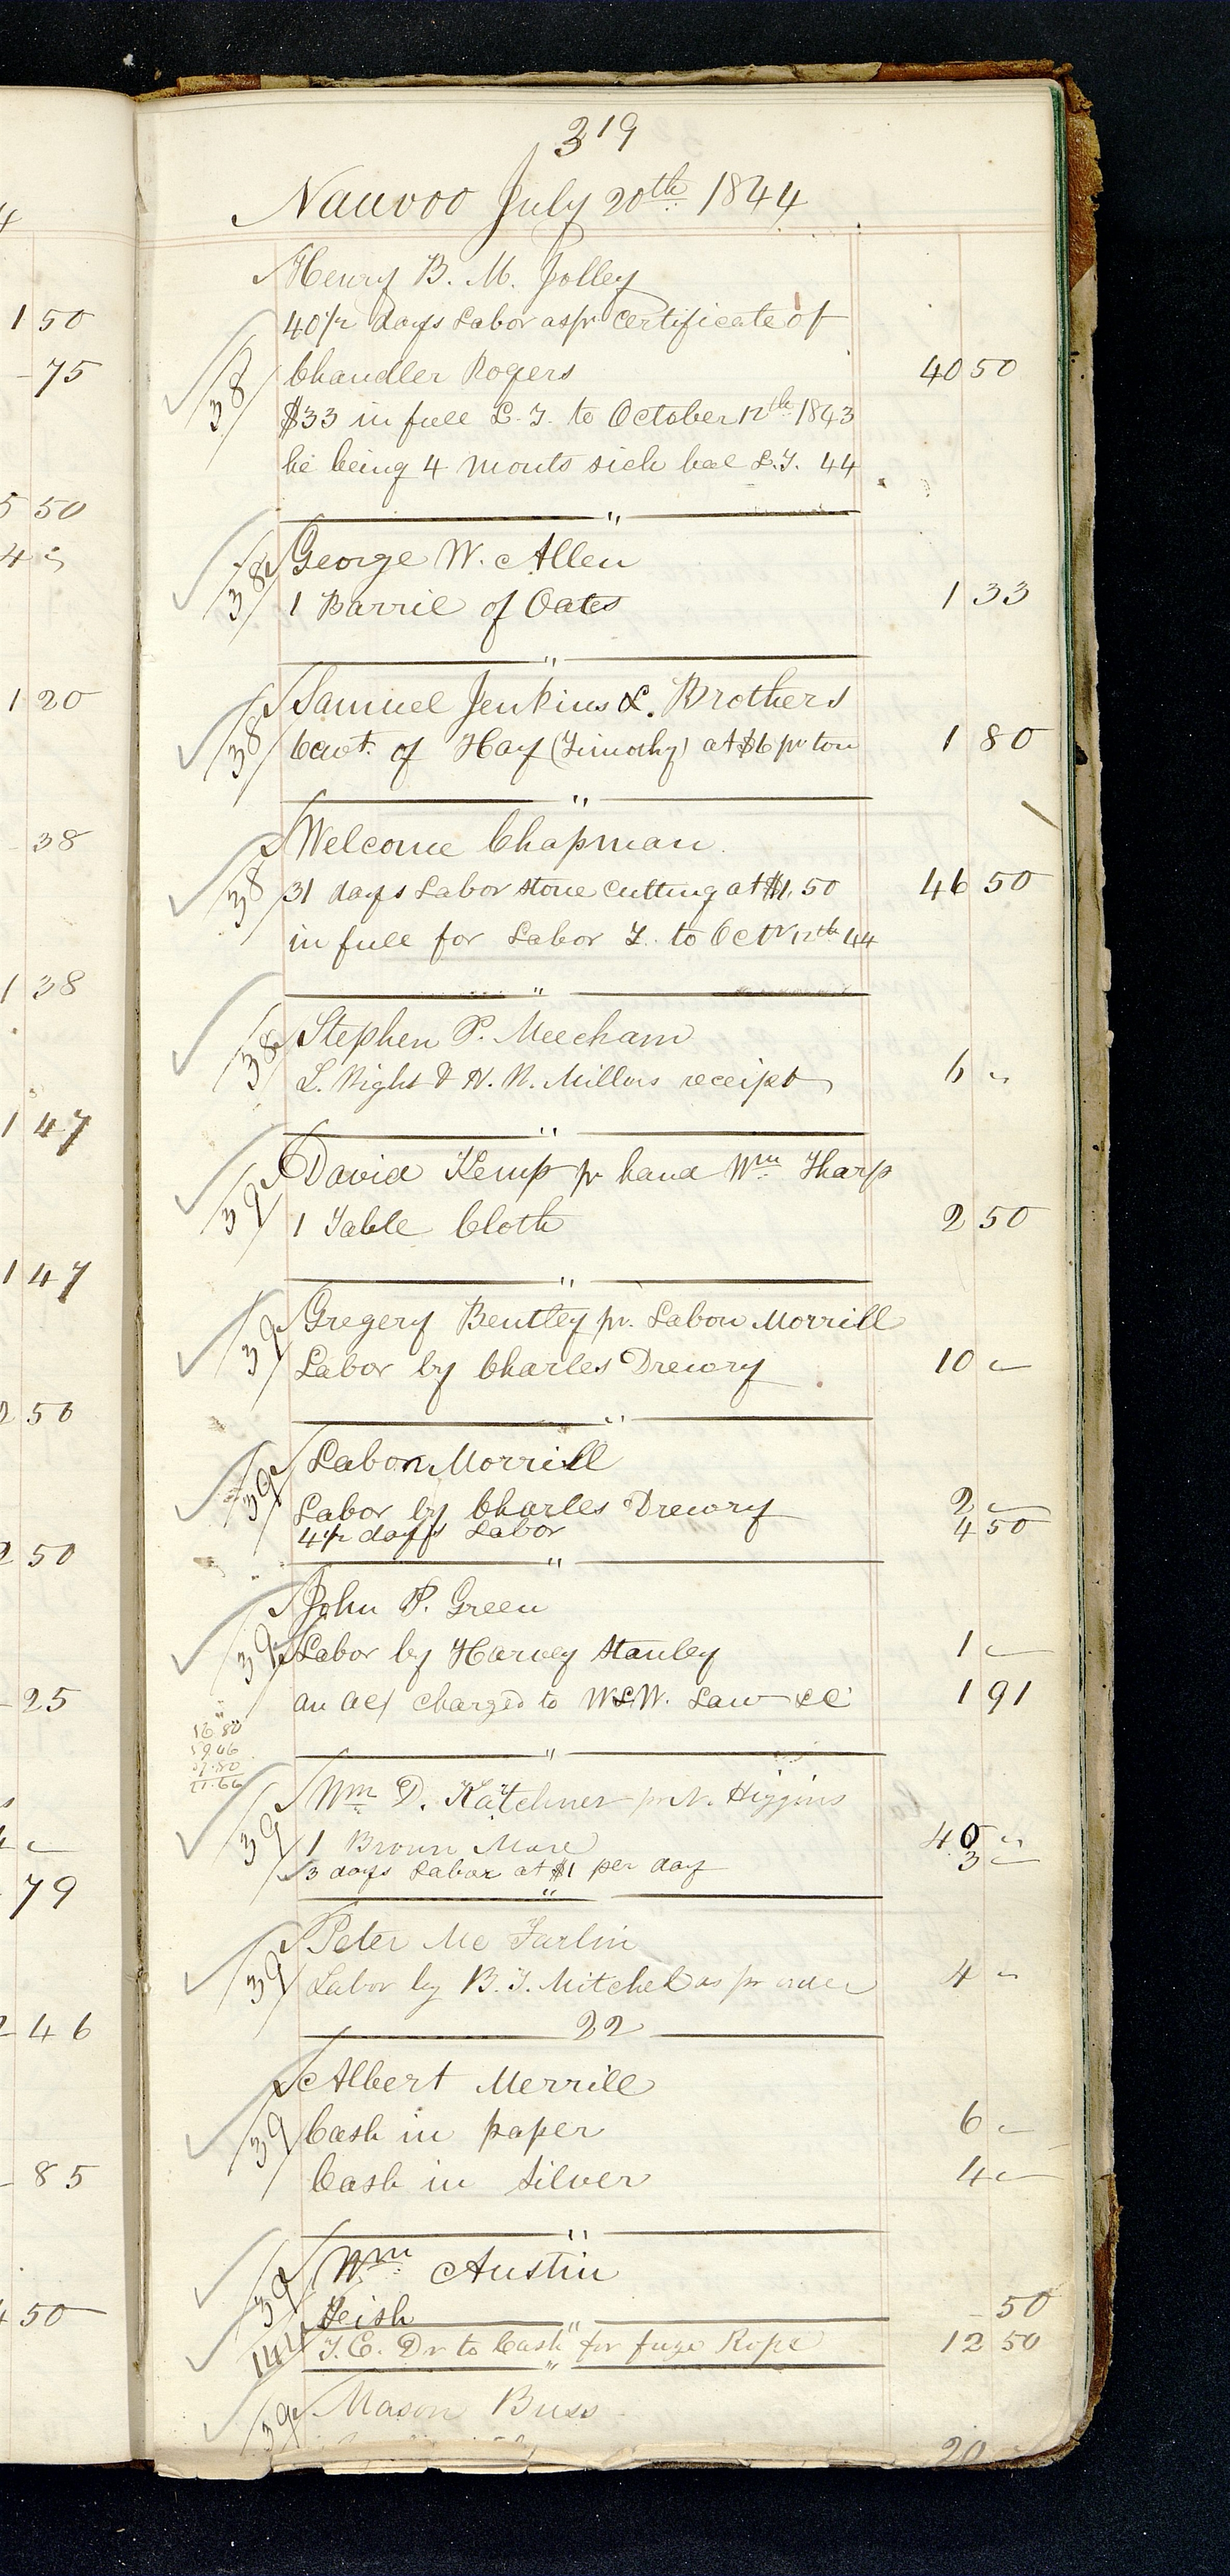 4
1 50
- 75
5 50
4 "
1 20
- 38
1 38
1 47
1 47
2 50
2 50
- 25
- 79
2 46
- 85
4 50
319
Nauvoo July 20th 1844
Henry B. M. Jolley
40 1/2 days Labor as pr certificate of
38 Chandler Rogers 40 50
$33 in full L. T. to October 12th 1843
he being 4 monts sick bal L.T. 44
"
38 George W. Allen
1 Barril of Oates 1 33
"
38 Samuel Jenkins & Brothers
6 cwt. of Hay (Timothy) at $6 pr ton 1 80
"
38 Welcome Chapman
31 days Labor stone cutting at $1,50 46 50
in full for Labor T. to Octr 12th 44
"
38 Stephen P. Meecham
L. Wight & N. N. Millers receipt 6 "
"
39 David Kemp pr hand Wm Tharp
1 Table Cloth 2 50
"
39 Gregery Bentley pr. Labon Morrill
Labor by Charles Drewry 10 "
"
39 Labon Morrill
Labor by Charles Drewry 2 "
4 1/2 days Labor 4 50
"
39 John P. Green
Labor by Harvey Stanley 1 "
an ac/ charged to W & W. Law &c 1 91
"
39 Wm D. Katchner pr N. Higgins
1 Brown Mare 40 "
3 days Labor at $1 per day 3 "
"
39 Peter Mc Farlin
Labor by B. T. Mitchel as pr order 4 "
22
39 Albert Merrill
Cash in paper 6 "
Cash in Silver 4 "
"
39 Wm Austin
Feish - 50
"
141 T. C. Dr to Cash for fuze Rope 12 50
"
39 Mason Buss
20